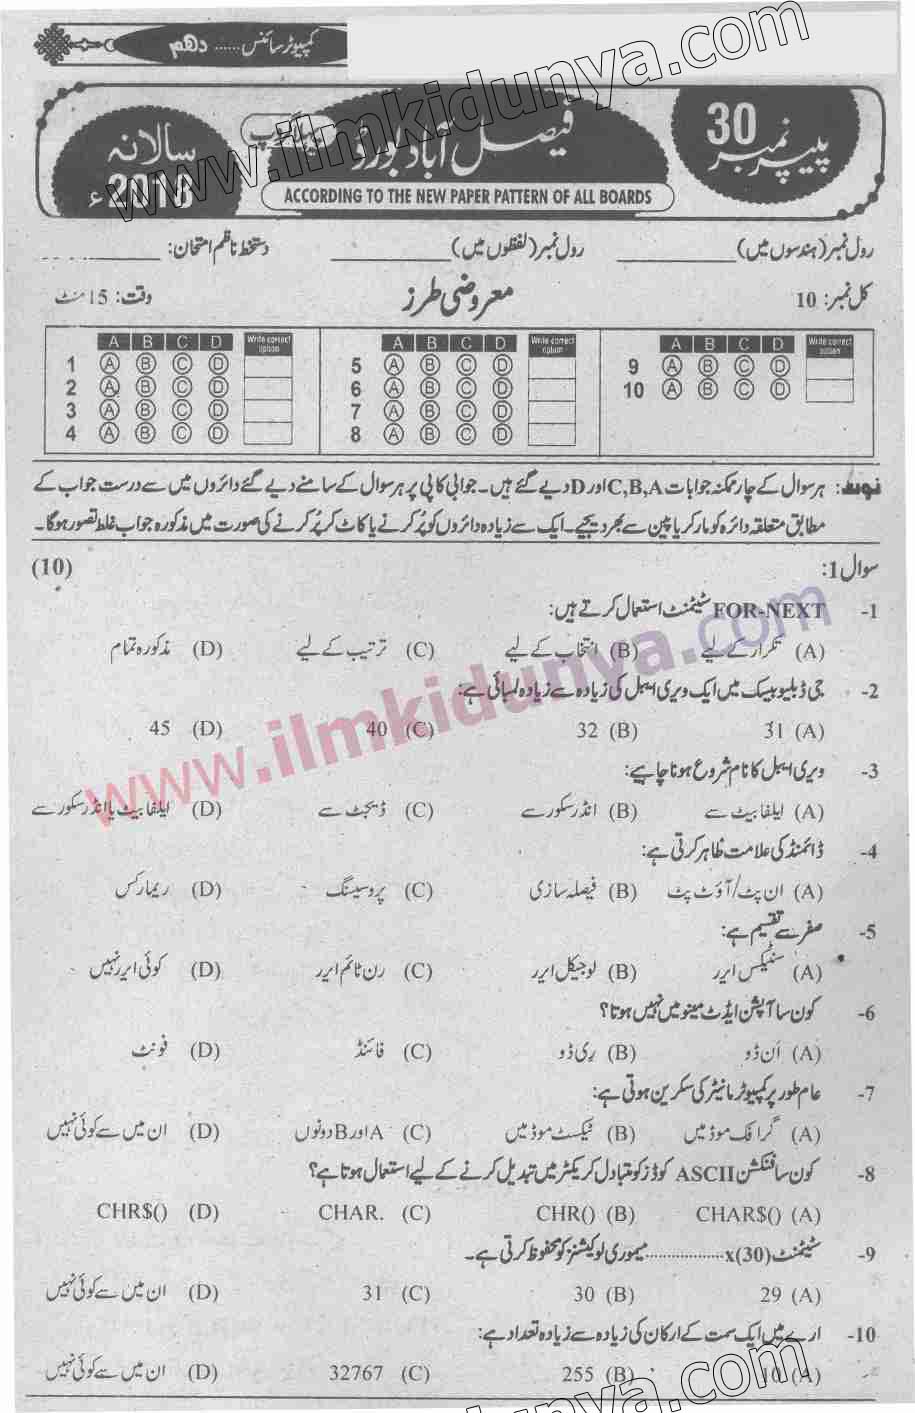 کمپیوٹر سائنس ...... دہم
www.ilmkidunya.com
پیپر نمبر 30
فیصل آباد بورڈ
سالانہ 2018ء
ACCORDING TO THE NEW PAPER PATTERN OF ALL BOARDS
رول نمبر (ہندسوں میں) ____________ رول نمبر (لفظوں میں) ____________ دستخط ناظم امتحان: ____________
کل نمبر: 10 معروضی طرز وقت: 15 منٹ
A B C D Write correct option A B C D Write correct option A B C D Write correct option
1 A B C D 5 A B C D 9 A B C D
2 A B C D 6 A B C D 10 A B C D
3 A B C D 7 A B C D
4 A B C D 8 A B C D
نوٹ: ہر سوال کے چار ممکنہ جوابات C,B,A اور D دیے گئے ہیں۔ جوابی کاپی پر ہر سوال کے سامنے دیے گئے دائروں میں سے درست جواب کے
مطابق متعلقہ دائرہ کو مارکر یا پین سے بھر دیجیے۔ ایک سے زیادہ دائروں کو پُر کرنے یا کاٹ کر پُر کرنے کی صورت میں مذکورہ جواب غلط تصور ہوگا۔
سوال 1: (10)
1- FOR-NEXT سٹیٹمنٹ استعمال کرتے ہیں:
(A) تکرار کے لیے (B) انتخاب کے لیے (C) ترتیب کے لیے (D) مذکورہ تمام
2- جی ڈبلیو بیسک میں ایک ویری ایبل کی زیادہ سے زیادہ لمبائی ہے:
(A) 31 (B) 32 (C) 40 (D) 45
www.ilmkidunya.com
3- ویری ایبل کا نام شروع ہونا چاہیے:
(A) ایلفا بیٹ سے (B) انڈر سکور سے (C) ڈیجٹ سے (D) ایلفا بیٹ یا انڈر سکور سے
4- ڈائمنڈ کی علامت ظاہر کرتی ہے:
(A) ان پٹ/آؤٹ پٹ (B) فیصلہ سازی (C) پروسیسنگ (D) ریمارکس
5- صفر سے تقسیم ہے:
(A) سنٹیکس ایرر (B) لوجیکل ایرر (C) رن ٹائم ایرر (D) کوئی ایرر نہیں
6- کون سا آپشن ایڈٹ مینو میں نہیں ہوتا؟
(A) اَن ڈو (B) ری ڈو (C) فائنڈ (D) فونٹ
7- عام طور پر کمپیوٹر مانیٹر کی سکرین ہوتی ہے:
(A) گرافک موڈ میں (B) ٹیکسٹ موڈ میں (C) A اور B دونوں (D) ان میں سے کوئی نہیں
8- کون سا فنکشن ASCII کوڈز کو متبادل کریکٹر میں تبدیل کرنے کے لیے استعمال ہوتا ہے؟
(A) CHAR$() (B) CHR() (C) CHAR. (D) CHR$()
9- سٹیٹمنٹ x(30).................. میموری لوکیشنز کو محفوظ کرتی ہے۔
(A) 29 (B) 30 (C) 31 (D) ان میں سے کوئی نہیں
10- ارے میں ایک سمت کے ارکان کی زیادہ سے زیادہ تعداد ہے:
(A) 10 (B) 255 (C) 32767 (D) ان میں سے کوئی نہیں
www.ilmkidunya.com